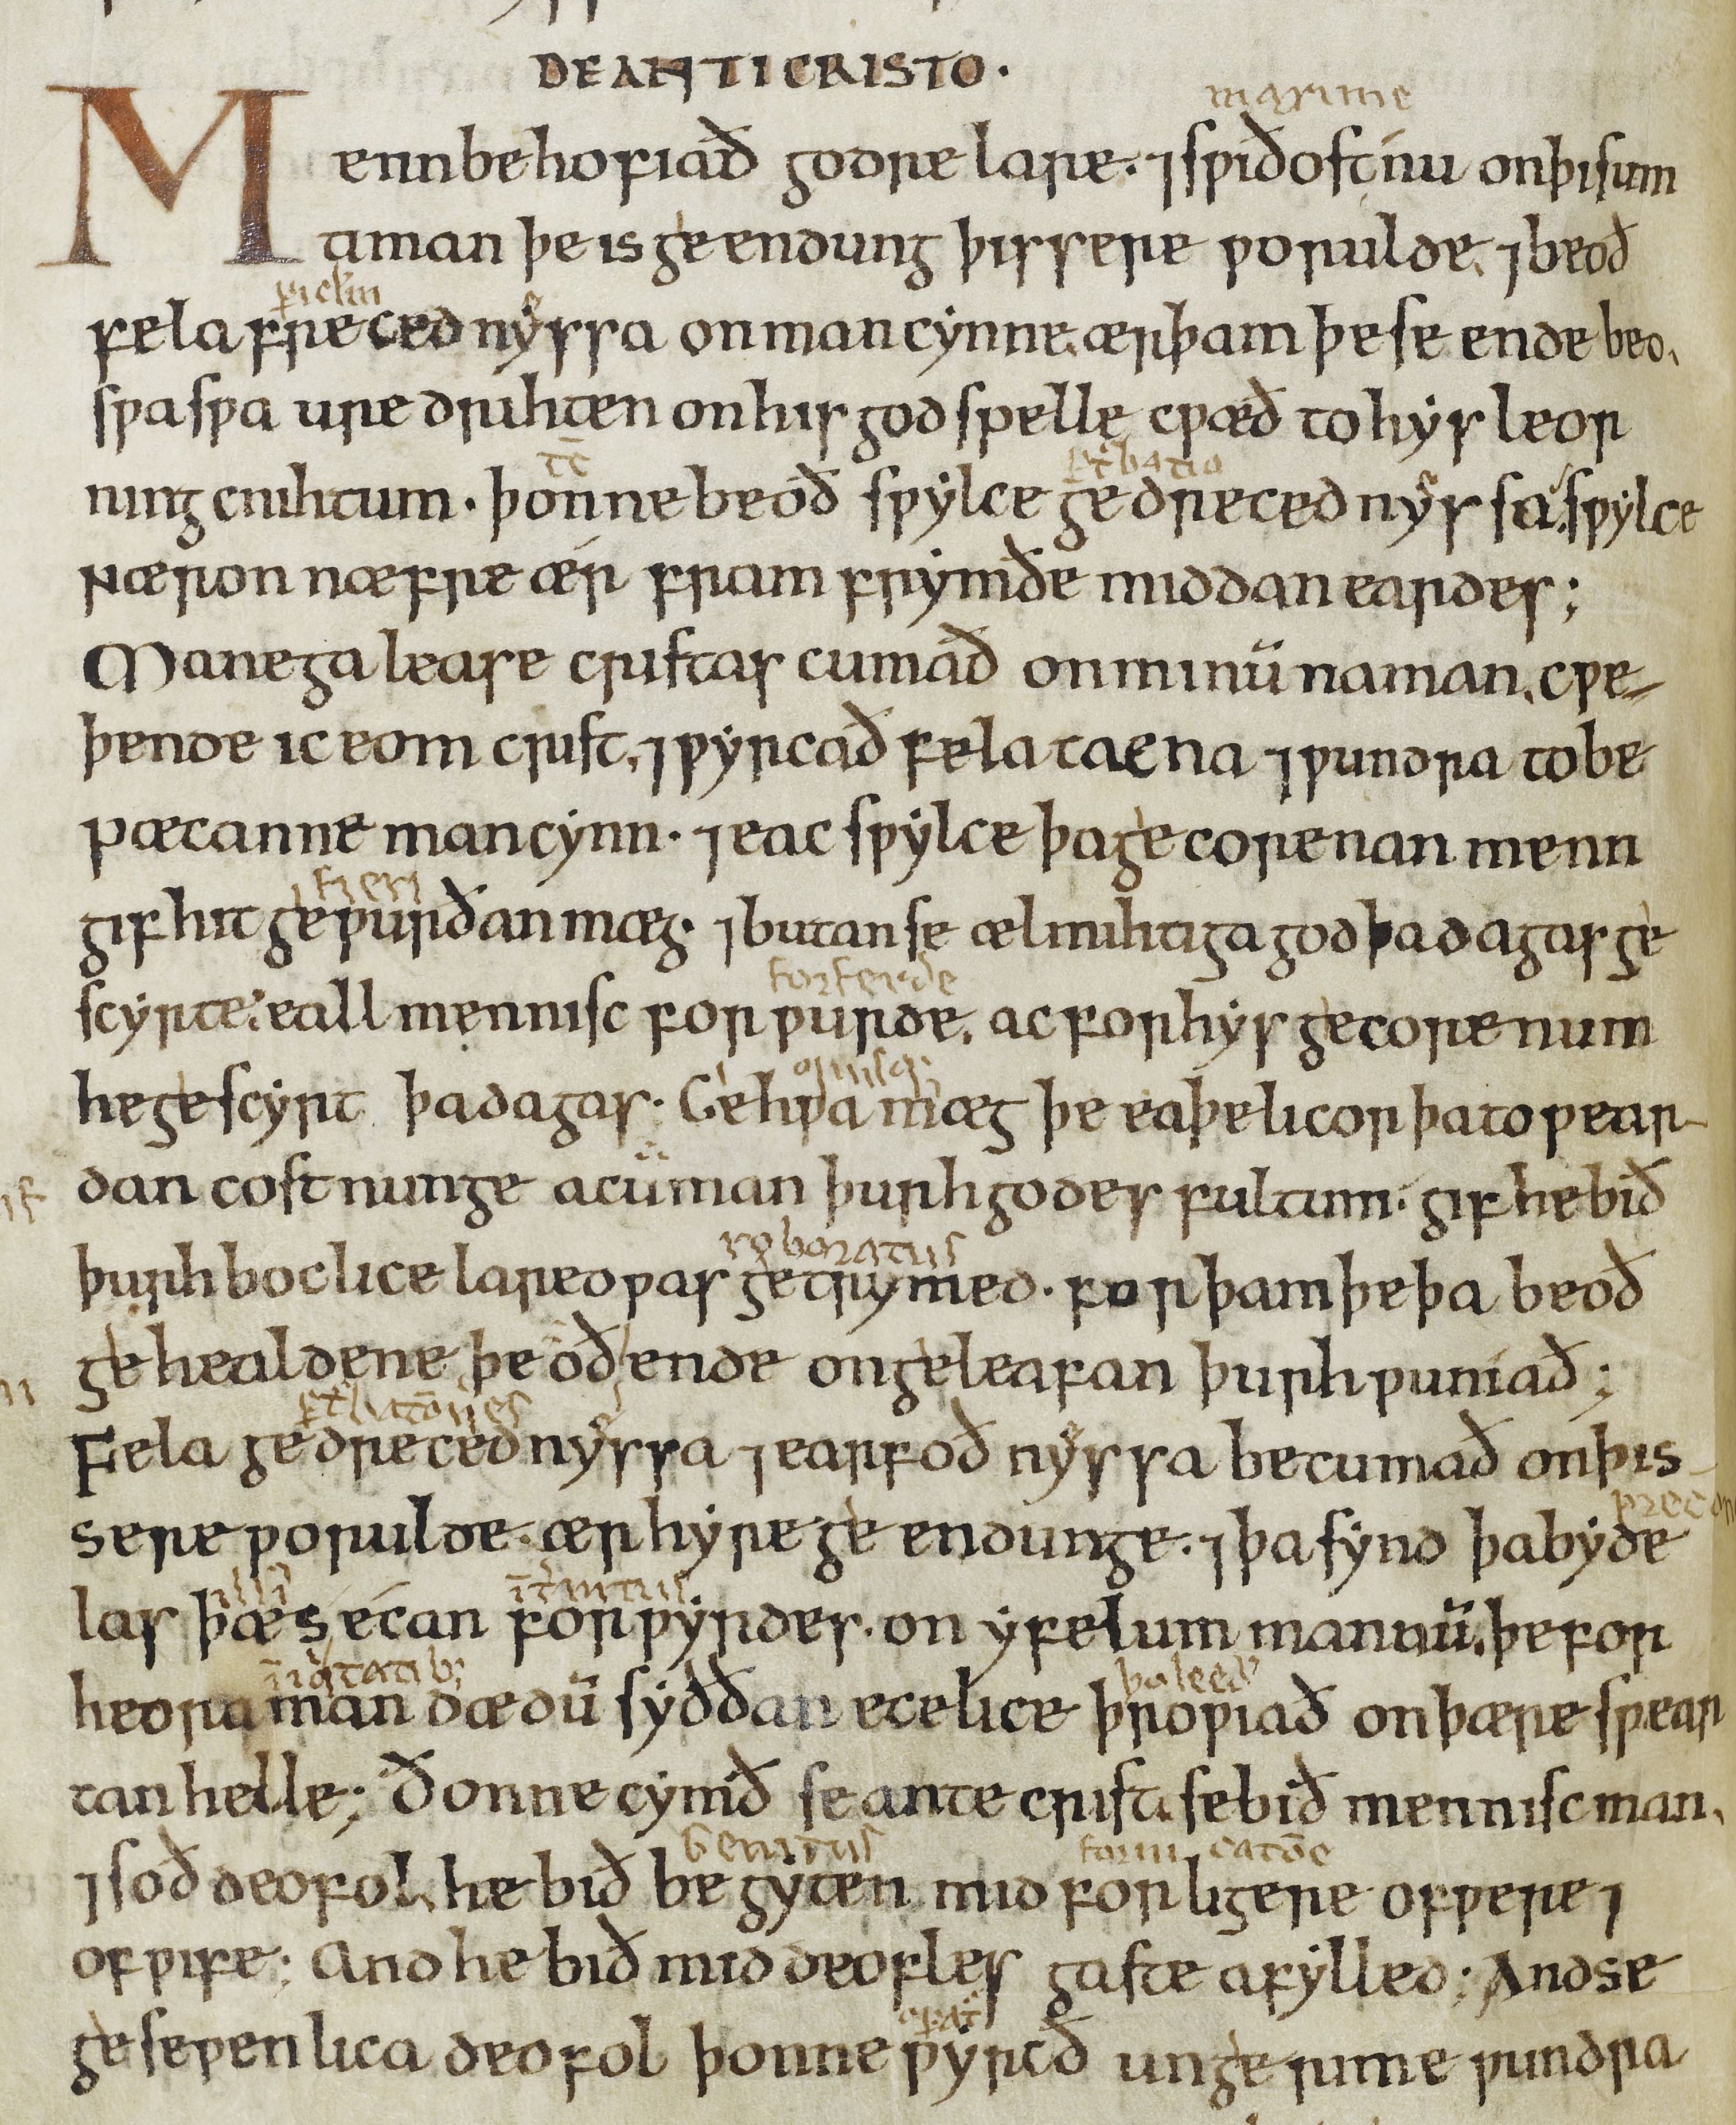 DE ANTICRISTO·
maxime
Menn behofiað godre lare· ⁊ sƿiðost nu on þisum
timan þe is geendung þissere ƿorulde, ⁊ beoð
fela frecednyssa on mancynne, ær þam þe se ende beo,
sƿa sƿa ure drihten on his godspelle cƿæð to hys leor
ning cnihtum· þonne beoð sƿylce gedrecednyssa, sƿylce
næron næfre ær fram frymðe middaneardes;
Manega lease cristas cumað on minū naman, cƿe-
þende ic eom crist, ⁊ ƿyrcað fela tacna ⁊ ƿundra to be
pæcanne mancynn· ⁊ eac sƿylce þa gecorenan menn
fieri
gif hit geƿurðan mæg· ⁊ butan se ælmihtiga god þa dagas ge
forferde
scyrte, eall mennisc forƿurde, ac for hys gecorenum
he gescyrt þa dagas· Gehƿa mæg þe eaþelicor þa toƿear-
dan costnunge acuman þurh godes fultum· gif he bið
roboratus
þurh boclice lare odƿas getrymed· for þam þe þa beoð
gehealdene þe oð ende on geleafan þurhƿuniað;
Fela gedrecednyssa ⁊ earfoðnyssa becumað on þis
sere ƿorulde· ær hyre geendunge· ⁊ þa synd þa byde
las þæs ecan forƿyrdes· on yfelum mannū, þe for
heora mandædū syððan ecelice þroƿiað on þære sƿear
tan helle; Ðonne cymð se antecrist, se bið mennisc man,
⁊ soð deofol, he bið begyten mid forligere of ƿere ⁊
of ƿife; And he bið mid deofles gaste afylled; And se
geseƿenlica deofol þonne ƿyrcð ungerime ƿundra